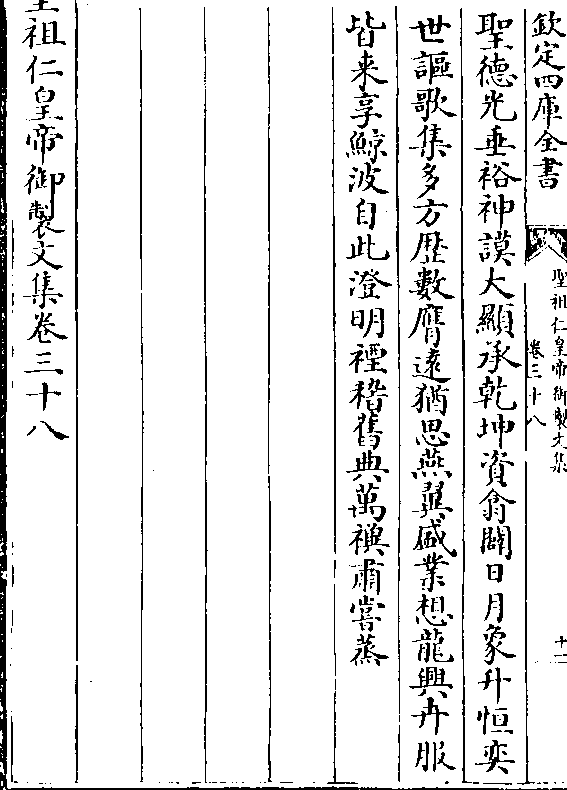 欽定四庫全書
聖祖仁皇帝御製文集
卷三十八
聖德光垂裕神謨大顯承乾坤資翕闢日月象升恒奕
世謳歌集多方厯數膺遠猶思燕翼盛業想龍興卉服
皆来享鯨波自此澄明禋稽舊典萬禩肅嘗蒸
聖祖仁皇帝御製文集卷三十八